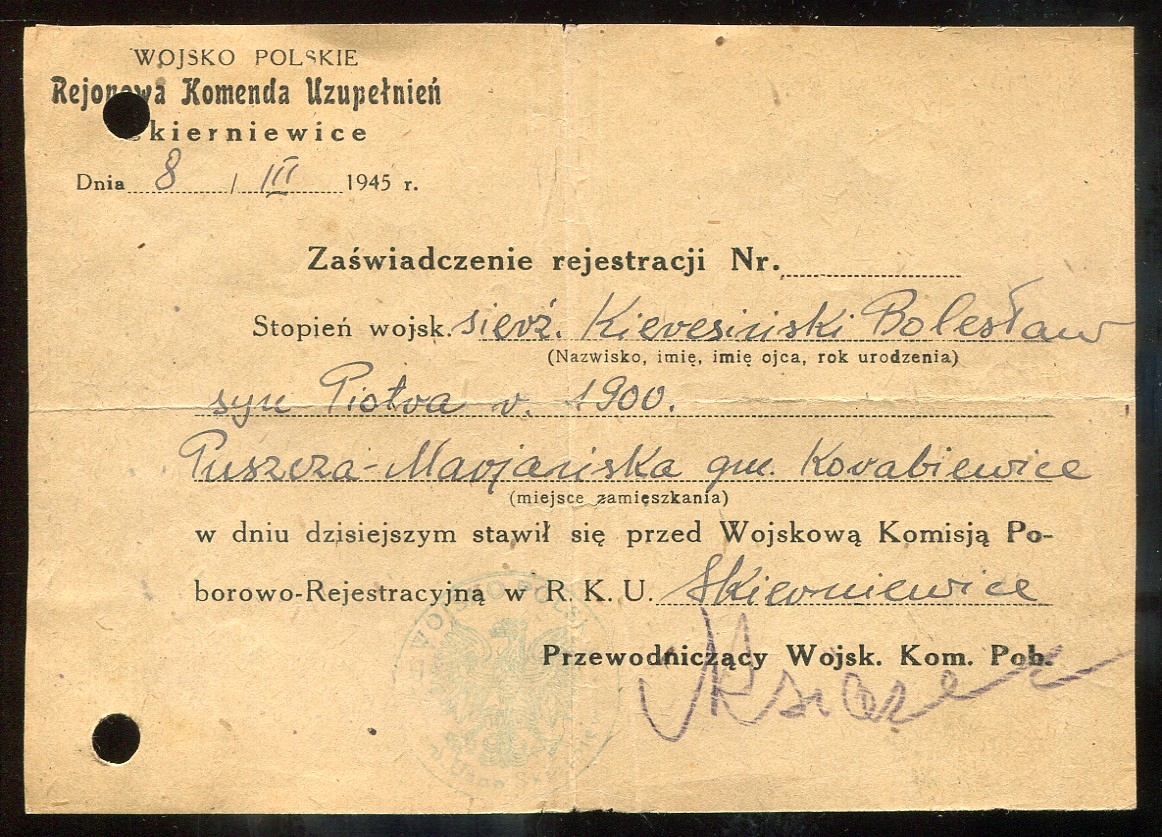 WOJSKO POLSKIE
Rejonowa Komenda Uzupełnień
Skierniewice
Dnia 8 / III 1945 r.
Zaświadczenie rejestracji Nr.
Stopień wojsk. sierż. Kieresiński Bolesław
(Nazwisko, imię, imię ojca, rok urodzenia)
syn Piotra r. 1900.
Puszcza-Marjańska gm. Korabiewice
(miejsce zamieszkania)
w dniu dzisiejszym stawił się przed Wojskową Komisją Po-
borowo-Rejestracyjną w R. K. U. Skierniewice
WOJSKO POLS
Przewodniczący Wojsk. Kom. Pob.